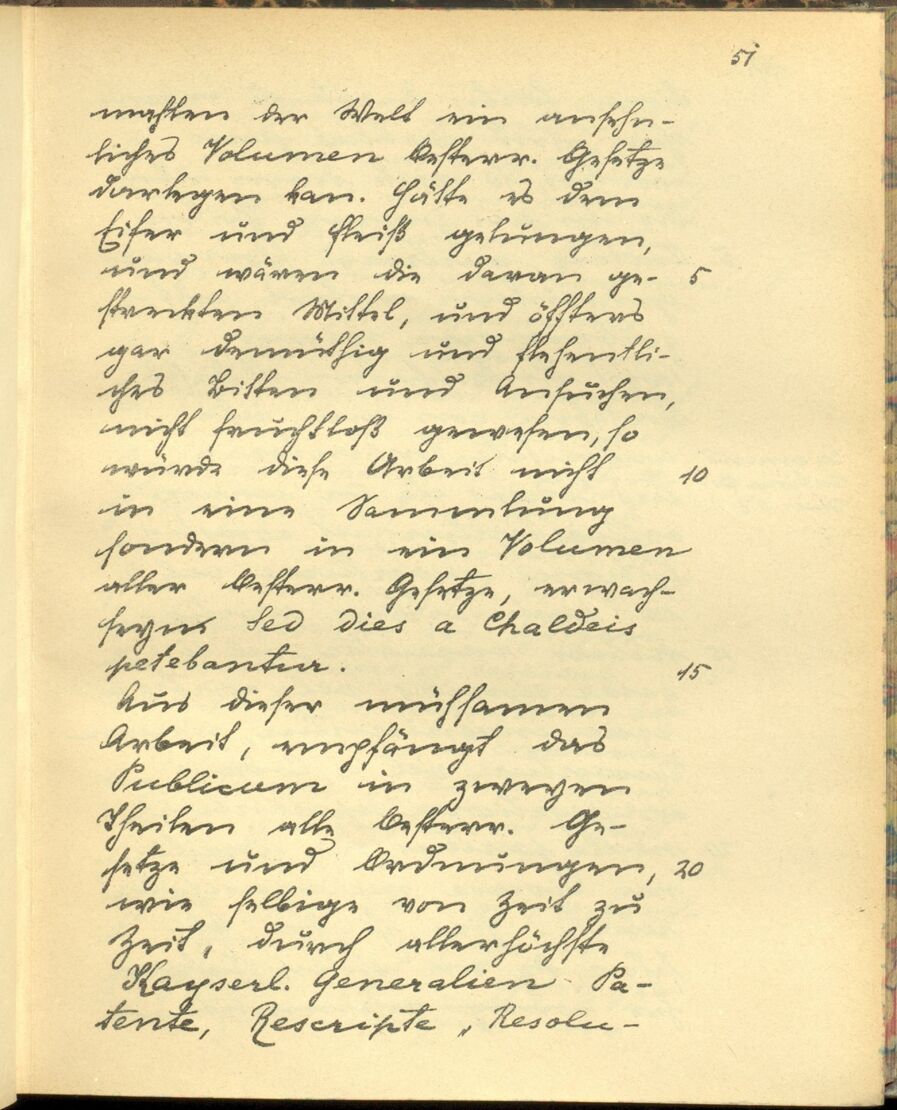 51
mahlen der Welt ein ansehn-
liches Volumen Oesterr. Gesetze
darlegen kan. Hätte es dem
Eifer und Fleiß gelungen,
und wären die daran ge- 5
streckten Mittel, und öffters
gar demüthig und flehentli-
ches Bitten und Ansuchen,
nicht fruchtloß gewesen, so
würde diese Arbeit nicht 10
in eine Sammlung
sondern in ein Volumen
aller Oesterr. Gesetze, erwach-
seyn. Sed dies a Chaldeis
petebantur. 15
Aus dieser mühsamen
Arbeit, empfängt das
Publicum in zweyen
Theilen alle Oesterr. Ge-
setze und Ordnungen, 20
wie selbige von Zeit zu
Zeit, durch allerhöchste
Kayserl. Generalien Pa-
tente, Rescripte, Resolu-